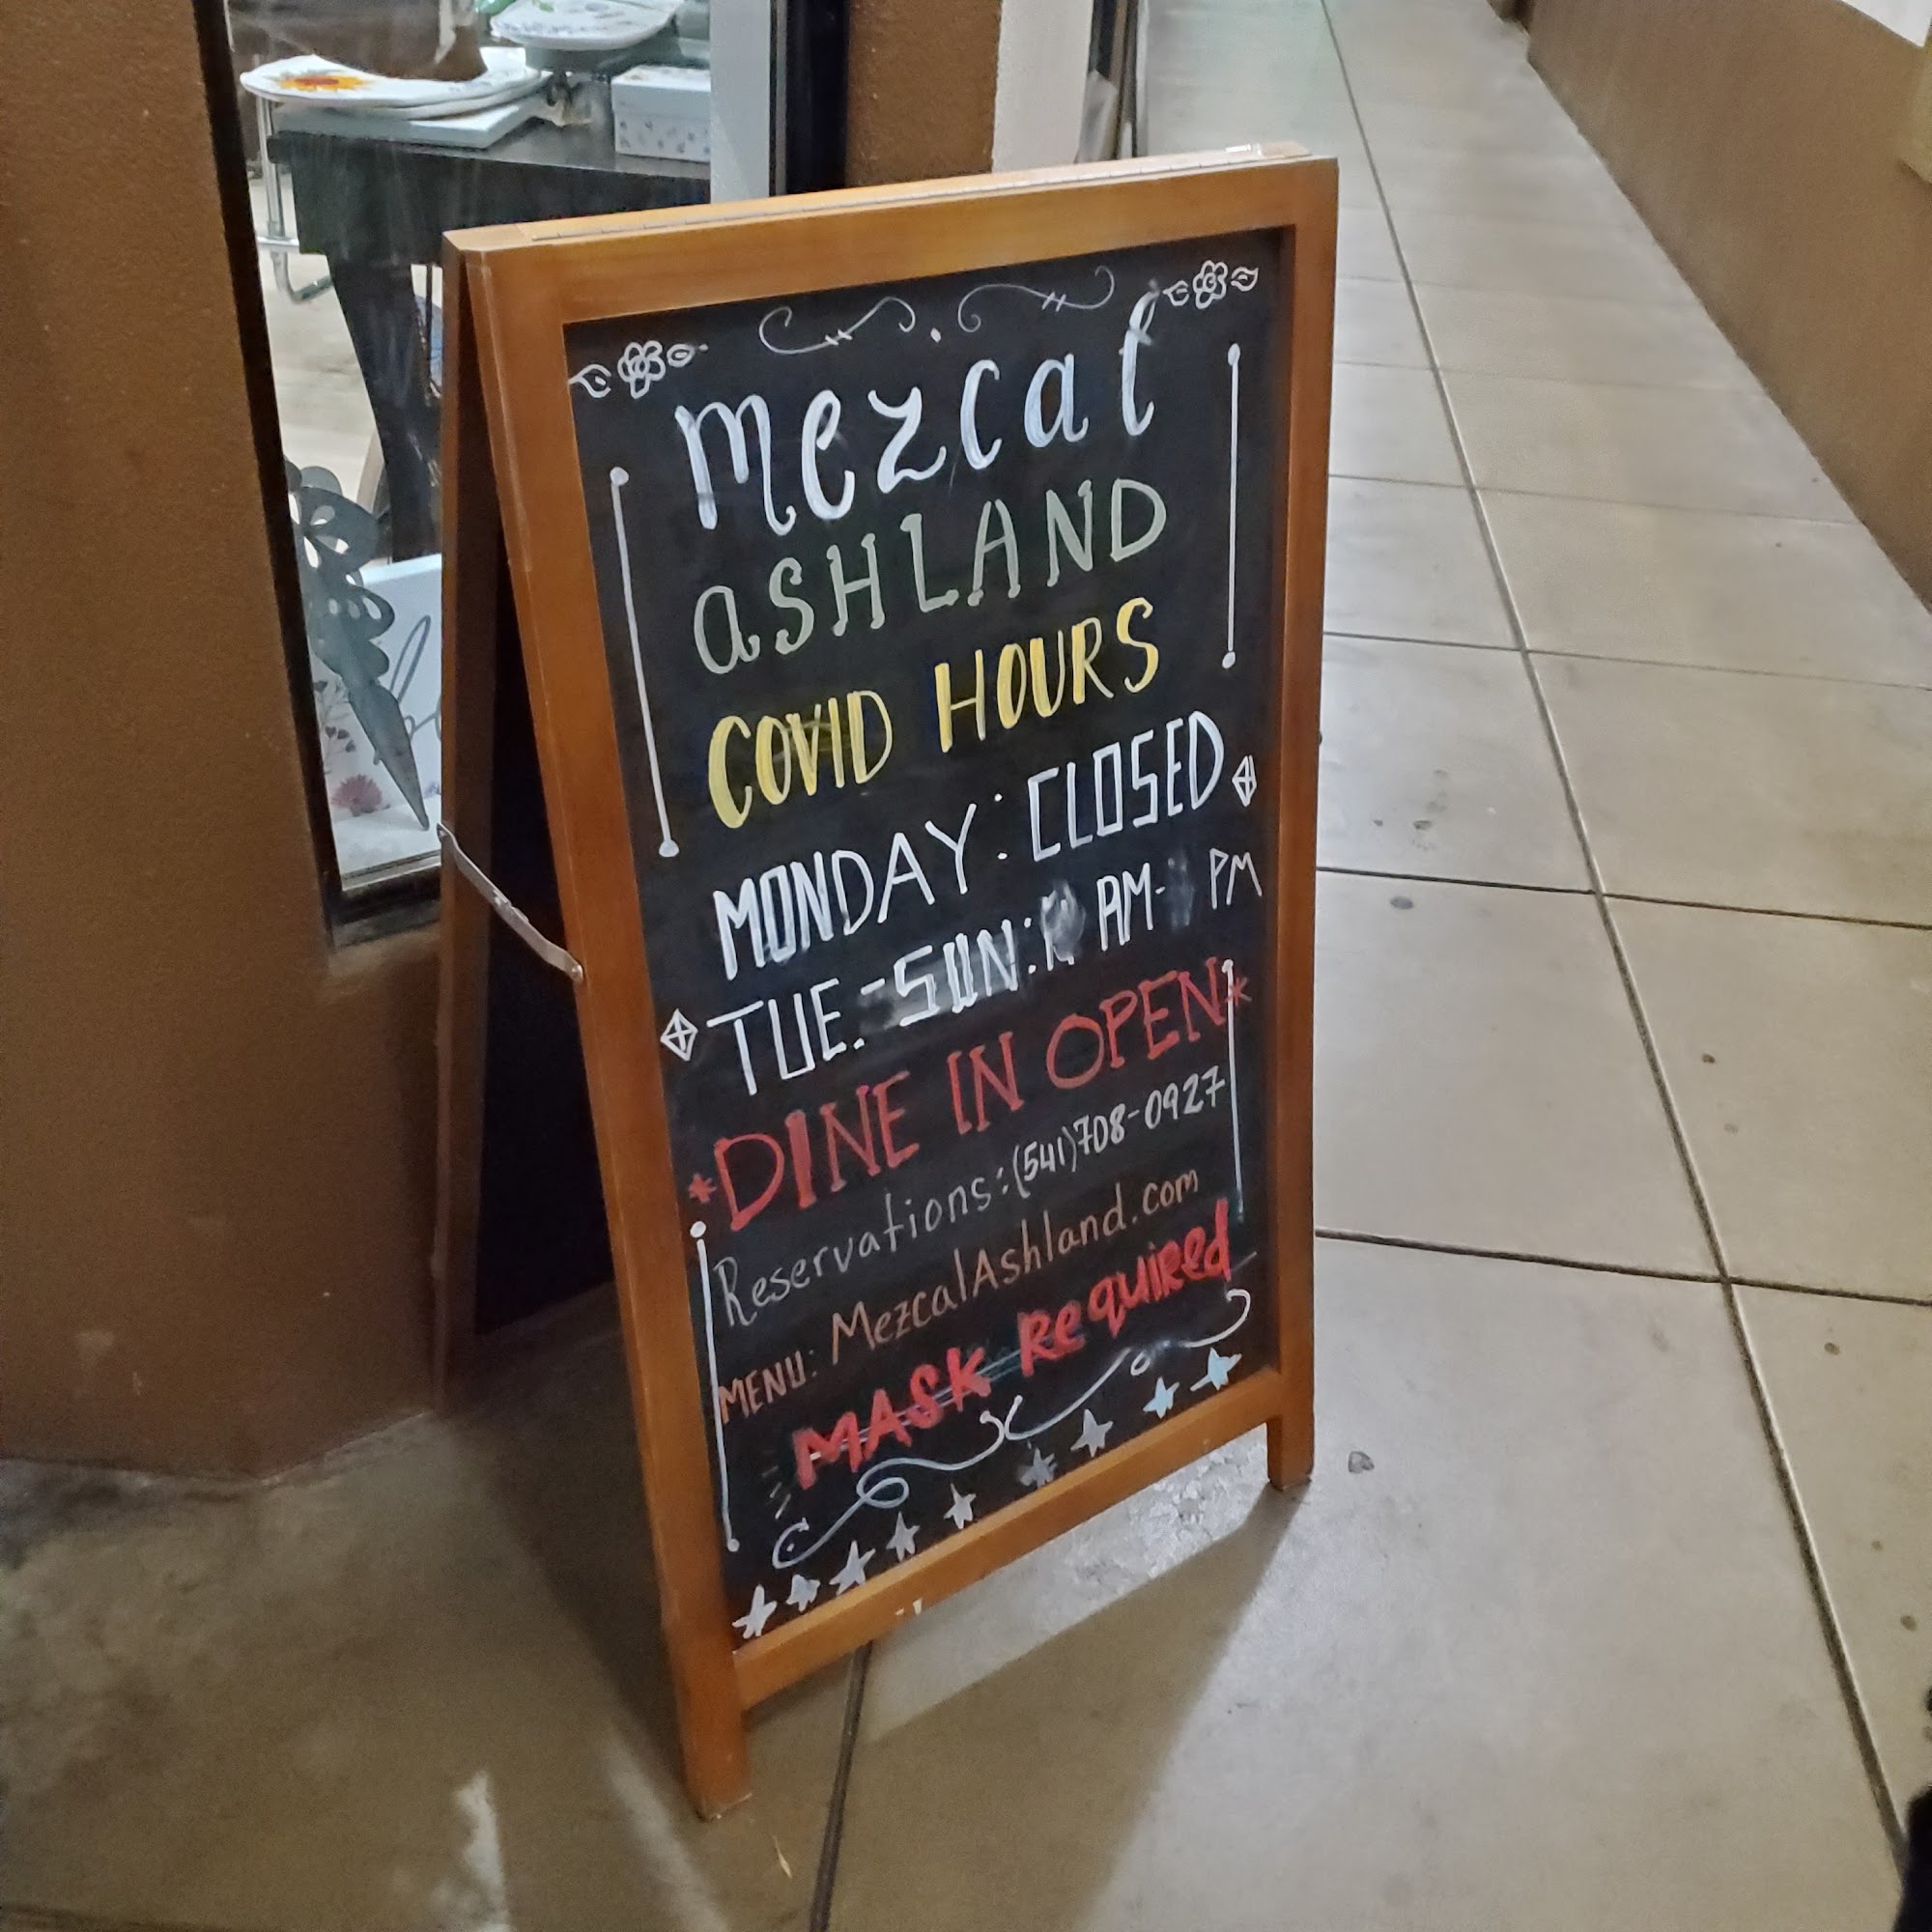 mezcal
ASHLAND
COVID HOURS
MONDAY: CLOSED
TUE.-SUN: AM- PM
*DINE IN OPEN*
Reservations:(541)708-0927
MENU: MezcalAshland.com
MASK Required